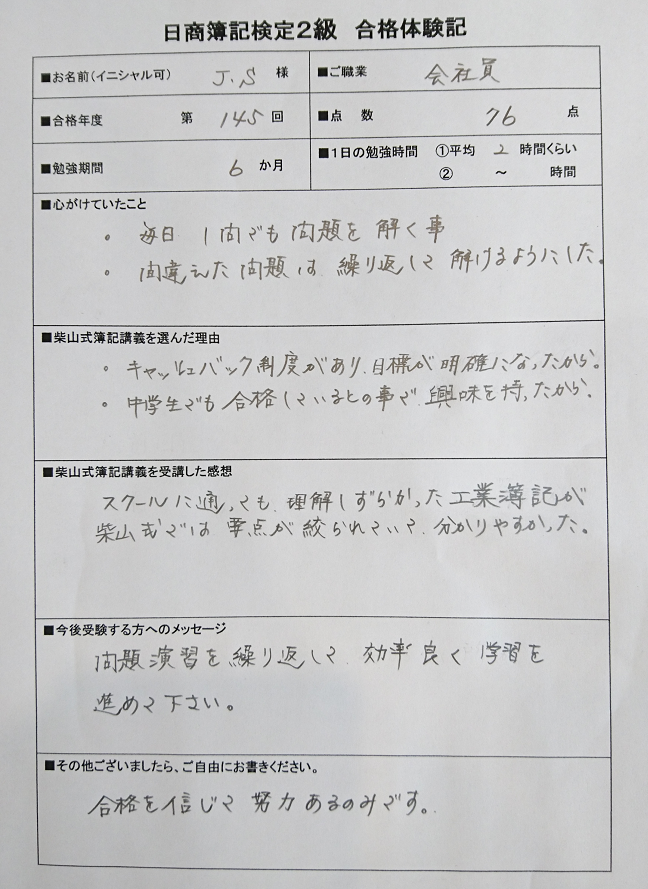 日商簿記検定2級 合格体験記
■お名前(イニシャル可) J.S 様
■ご職業 会社員
■合格年度 第 145 回
■点 数 76 点
■勉強期間 6 か月
■1日の勉強時間 ①平均 2 時間くらい
② ～ 時間
■心がけていたこと
・ 毎日 1問でも問題を解く事
・ 間違えた問題は繰り返して解けるようにした。
■柴山式簿記講義を選んだ理由
・ キャッシュバック制度があり、目標が明確になったから。
・ 中学生でも合格しているとの事で、興味を持ったから。
■柴山式簿記講義を受講した感想
スクールに通っても、理解しずらかった工業簿記が
柴山式では要点が絞られていて、分かりやすかった。
■今後受験する方へのメッセージ
問題演習を繰り返して、効率良く学習を
進めて下さい。
■その他ございましたら、ご自由にお書きください。
合格を信じて努力あるのみです。